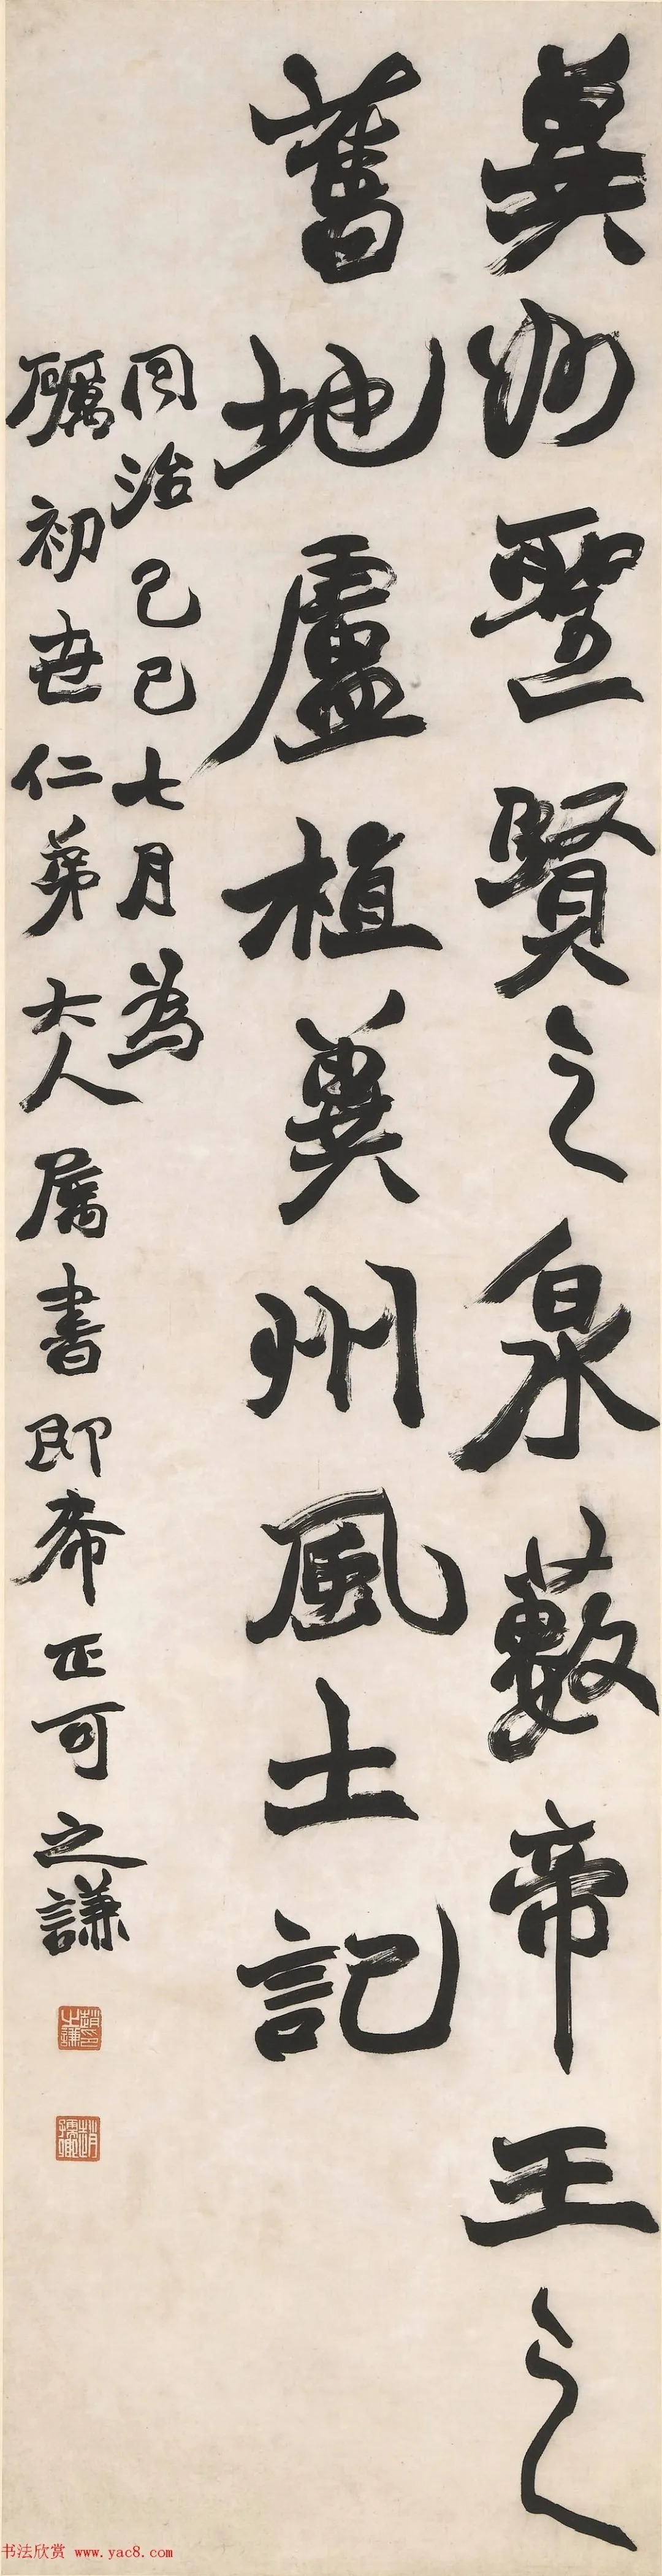 冀州聖賢之泉藪帝王之
舊地盧植冀州風土記
同治己巳七月為
礪初世仁弟大人屬書即希正可之謙
趙之謙印
書法欣赏 www.yac8.com